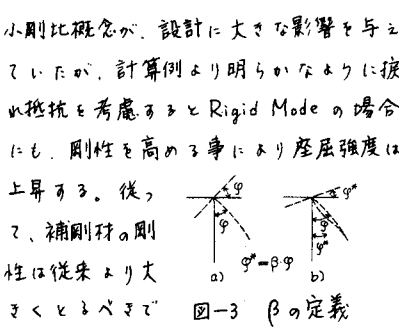 小剛比概念が、設計に大きな影響を与え
ていたが、計算例より明らかなように捩
れ抵抗を考慮するとRigid Modeの場合
にも、剛性を高める事により座屈強度は
上昇する。従っ
て、補剛材の剛
性は従来より大
きくとるべきで
φ
φ
a)
φ*=β·φ
φ*
φ
φ*
b)
図-3 βの定義